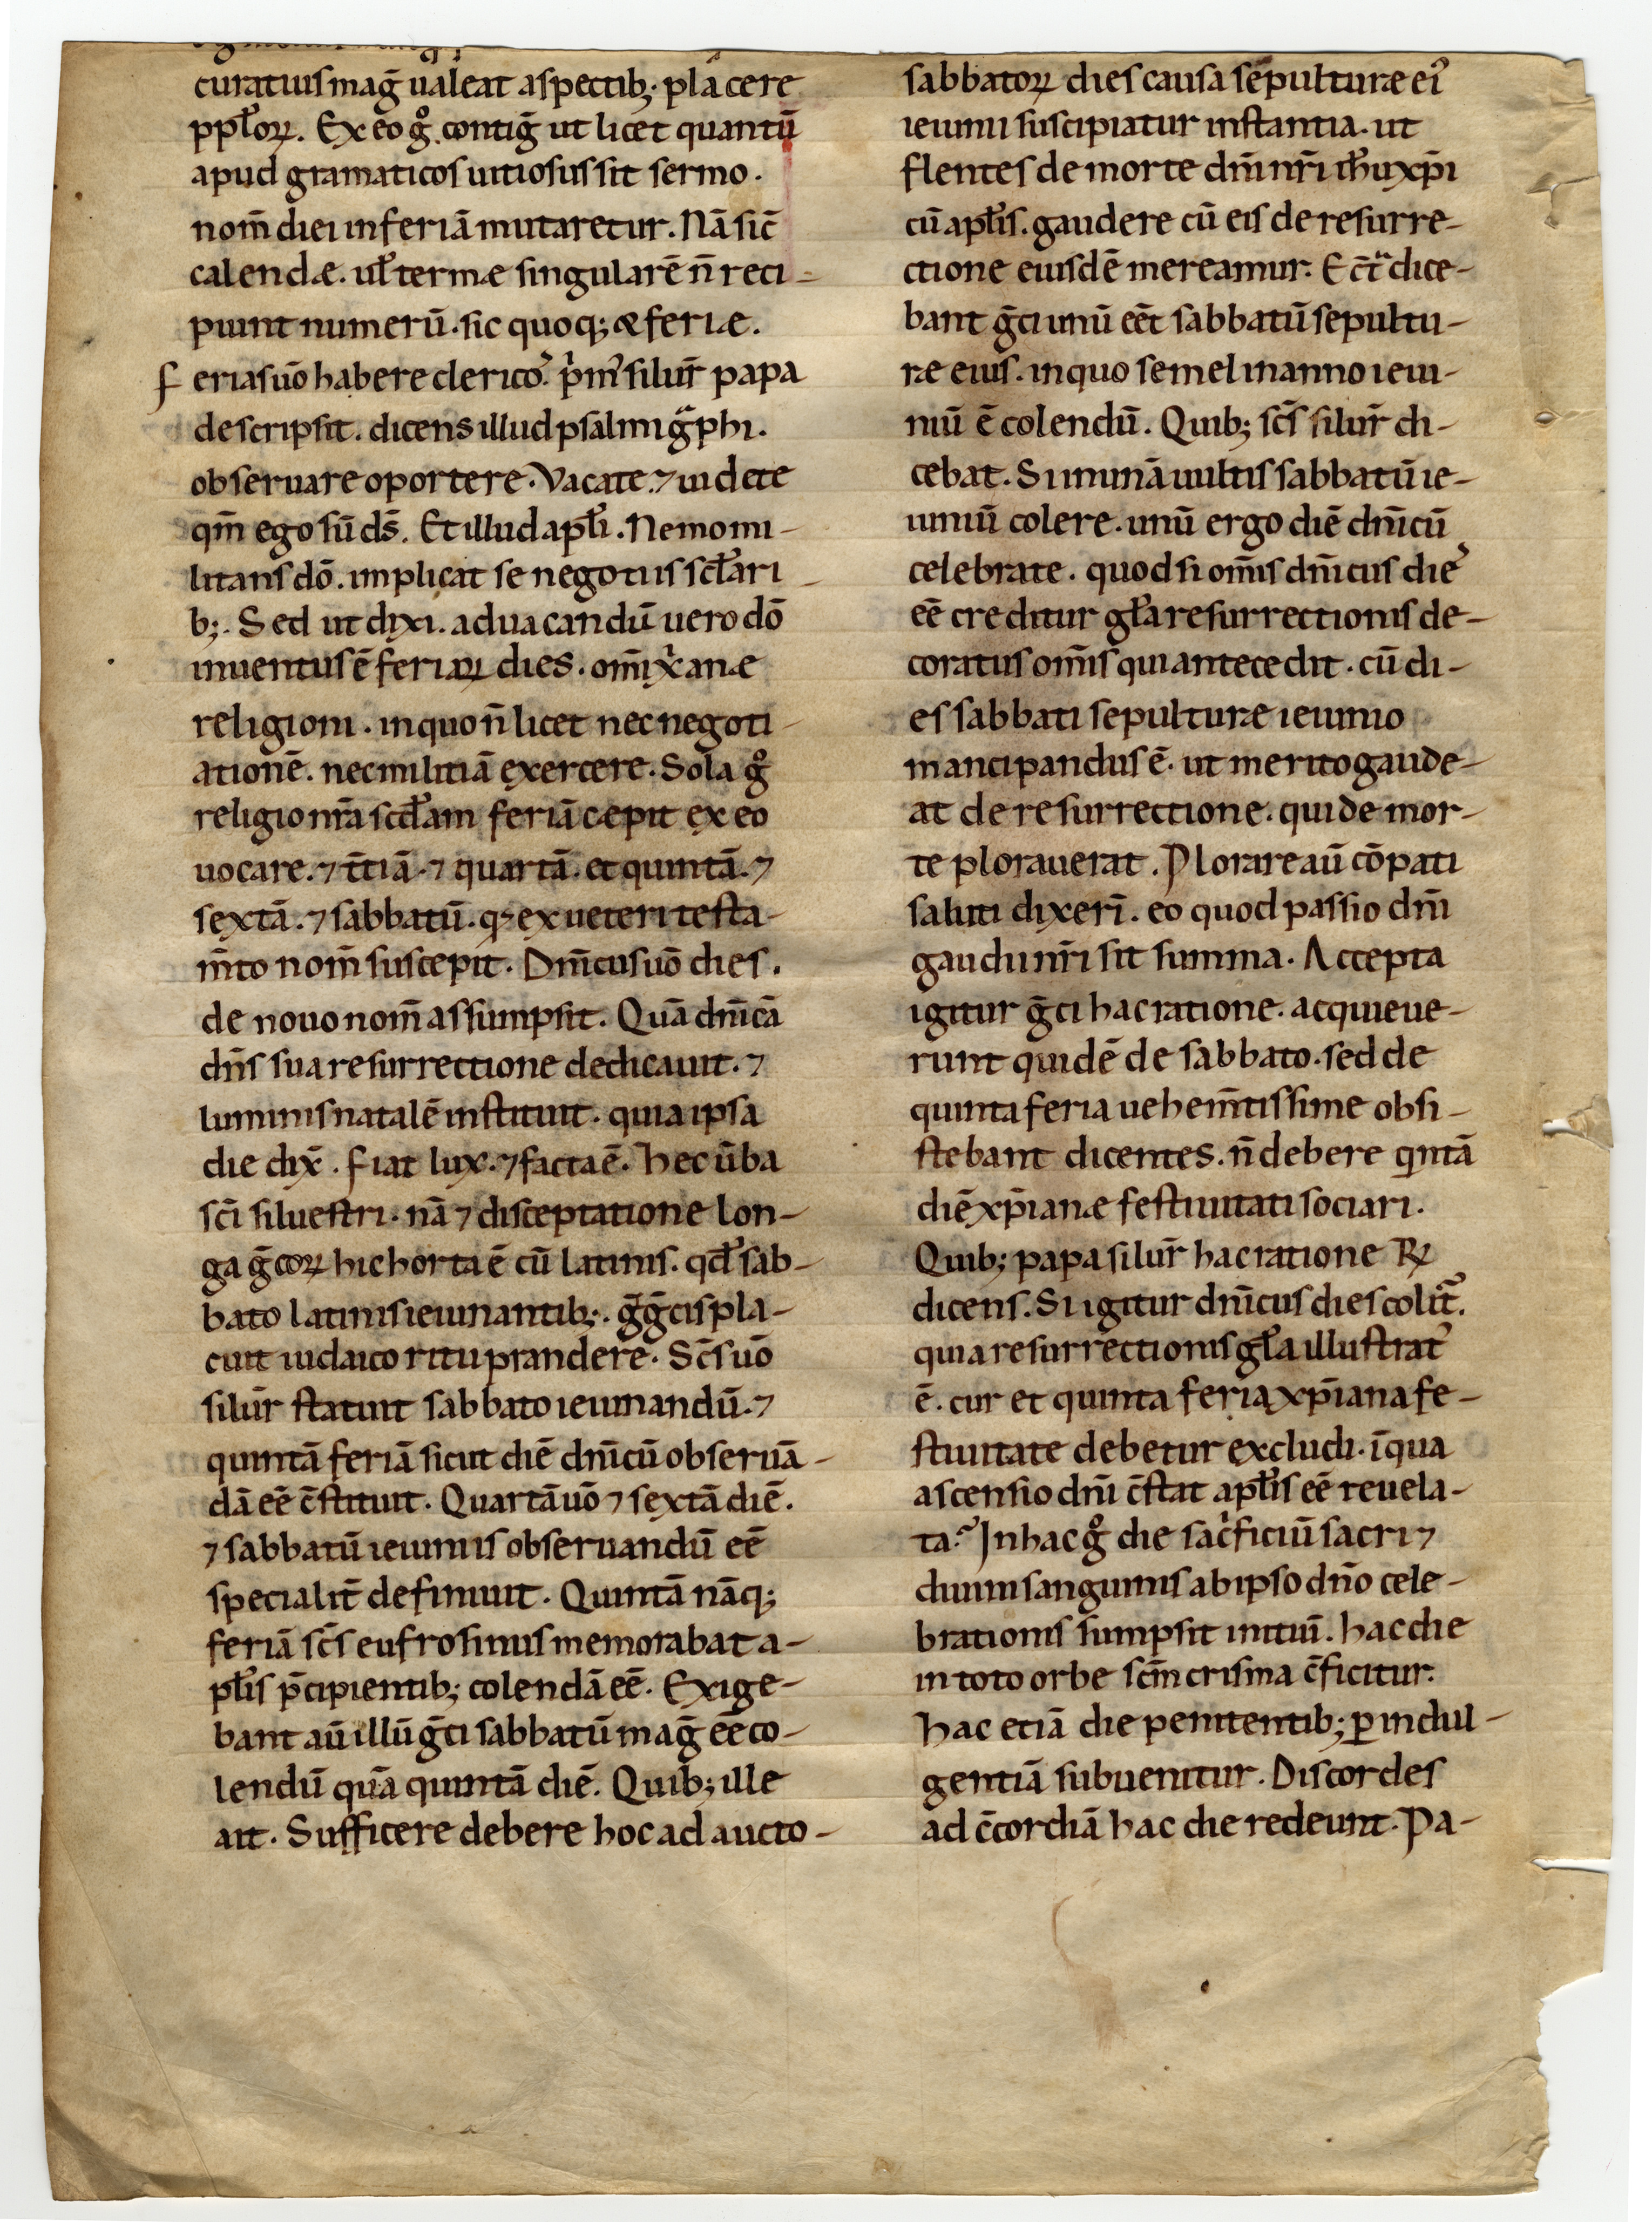 curatiusmag̃ ualeat aspectib; placere
ppl̃oꝝ. Ex eo gͦ contig̃ ut licet quantū
apud gramaticos uitiosus sit sermo.
nom̄ diei in feriā mutaretur. Nā sic̄
calendæ. ul̃ termæ singularē n̄ reci-
piunt numerū. sic quoq; & feriæ.
feria suō habere clerico᷒. pͥm᷒ silur̄ papa
descripsit. dicens illud psalmigᷓphi.
obseruare oportere. Vacate. ⁊ uidete
qm̄ ego sū ds̄. Et illud apl̃i. Nemo mi-
litans dō. implicat se negotiis scl̃ari-
b;. Sed ut dixi. ad uacandū uero dō
inuentus ē feriaꝝ dies. om̄i xͥanæ
religioni. in quo n̄ licet nec negoti-
ationē. nec militiā exercere. Sola gͦ
religio nr̄a scd̃am feriā cæpit ex eo
uocare. ⁊ t̄tiā. ⁊ quartā. et quintā. ⁊
sextā. ⁊ sabbatū. qꝫ ex ueteri testa-
m̄to nom̄ suscepit. Dn̄icus uō dies.
de nouo nom̄ assumpsit. Quā dn̄icā
dn̄s sua resurrectione dedicauit. ⁊
luminis natalē instituit. quia ipsa
die dix̄. fiat lux. ⁊ facta ē. hec ūba
sc̄i siluestri. nā ⁊ disceptatione lon-
ga g̃coꝝ hic horta ē cū latinis. qd̃ sab-
bato latinis ieiunantib;. g̃g̃cis pla-
cuit iudaico ritu prandere. Sc̄s uō
silur̄ statuit sabbato ieiunandū. ⁊
quintā feriā sicut diē dn̄icū obseruā-
dā eē c̄stituit. Quartā uō ⁊ sextā diē.
⁊ sabbatū ieiuniis obseruandū eē
specialit̄ definiuit. Quintā nāq;
feriā sc̄s eufrosinus memorabat a-
pl̃is p̄cipientib; colendā eē. Exige-
bant aū illū g̃ci sabbatū mag̃ eē co-
lendū quā quintā diē. Quib; ille
ait. Sufficere debere hoc ad aucto-
sabbatoꝝ dies causa sepulturæ ei᷒
ieiunii suscipiatur instantia. ut
flentes de morte dn̄i nr̄i ih̄u xp̄i
cū apl̃is. gaudere cū eis de resurre-
ctione eiusdē mereamur. E c̄tᷓ dice-
bant g̃ci unū eēt sabbatū sepultu-
ræ eius. in quo semel in anno ieiu-
niū ē colendū. Quib; sc̄s silur̄ di-
cebat. Si un̄nā uultis sabbatū ie-
iuniū colere. unū ergo diē dn̄icū
celebrate. quod si om̄is dn̄icus die᷒
eē creditur gl̃a resurrectionis de-
coratus om̄is qui antecedit. cū di-
es sabbati sepulturæ ieiunio
mancipandus ē. ut merito gaude-
at de resurrectione. qui de mor-
te plorauerat. Plorare aū cōpati
saluti dixerī. eo quod passio dn̄i
gaudii nr̄i sit summa. Accepta
igitur g̃ci hac ratione. acquieue-
runt quidē de sabbato. sed de
quinta feria uehem̄tissime obsi-
stebant dicentes. n̄ debere qͥntā
diē xp̄ianæ festiuitati sociari.
Quib; papa silur̄ hac ratione ℟
dicens. Si igitur dn̄icus dies colit᷑.
quia resurrectionis gl̃a illustrat᷒
ē. cur et quinta feria xp̄iana fe-
stiuitate debetur excludi. īqua
ascensio dn̄i c̄stat apl̃is eē reuela-
ta? In hac gͦ die sacͥficiū sacri ⁊
diuini sanguinis ab ipso dn̄o cele-
brationis sumpsit initiū. hac die
in toto orbe sc̄m crisma c̄ficitur.
hac etiā die penitentib; ꝑ indul-
gentiā subuenitur. Discordes
ad c̄cordiā hac die redeunt. Pa-